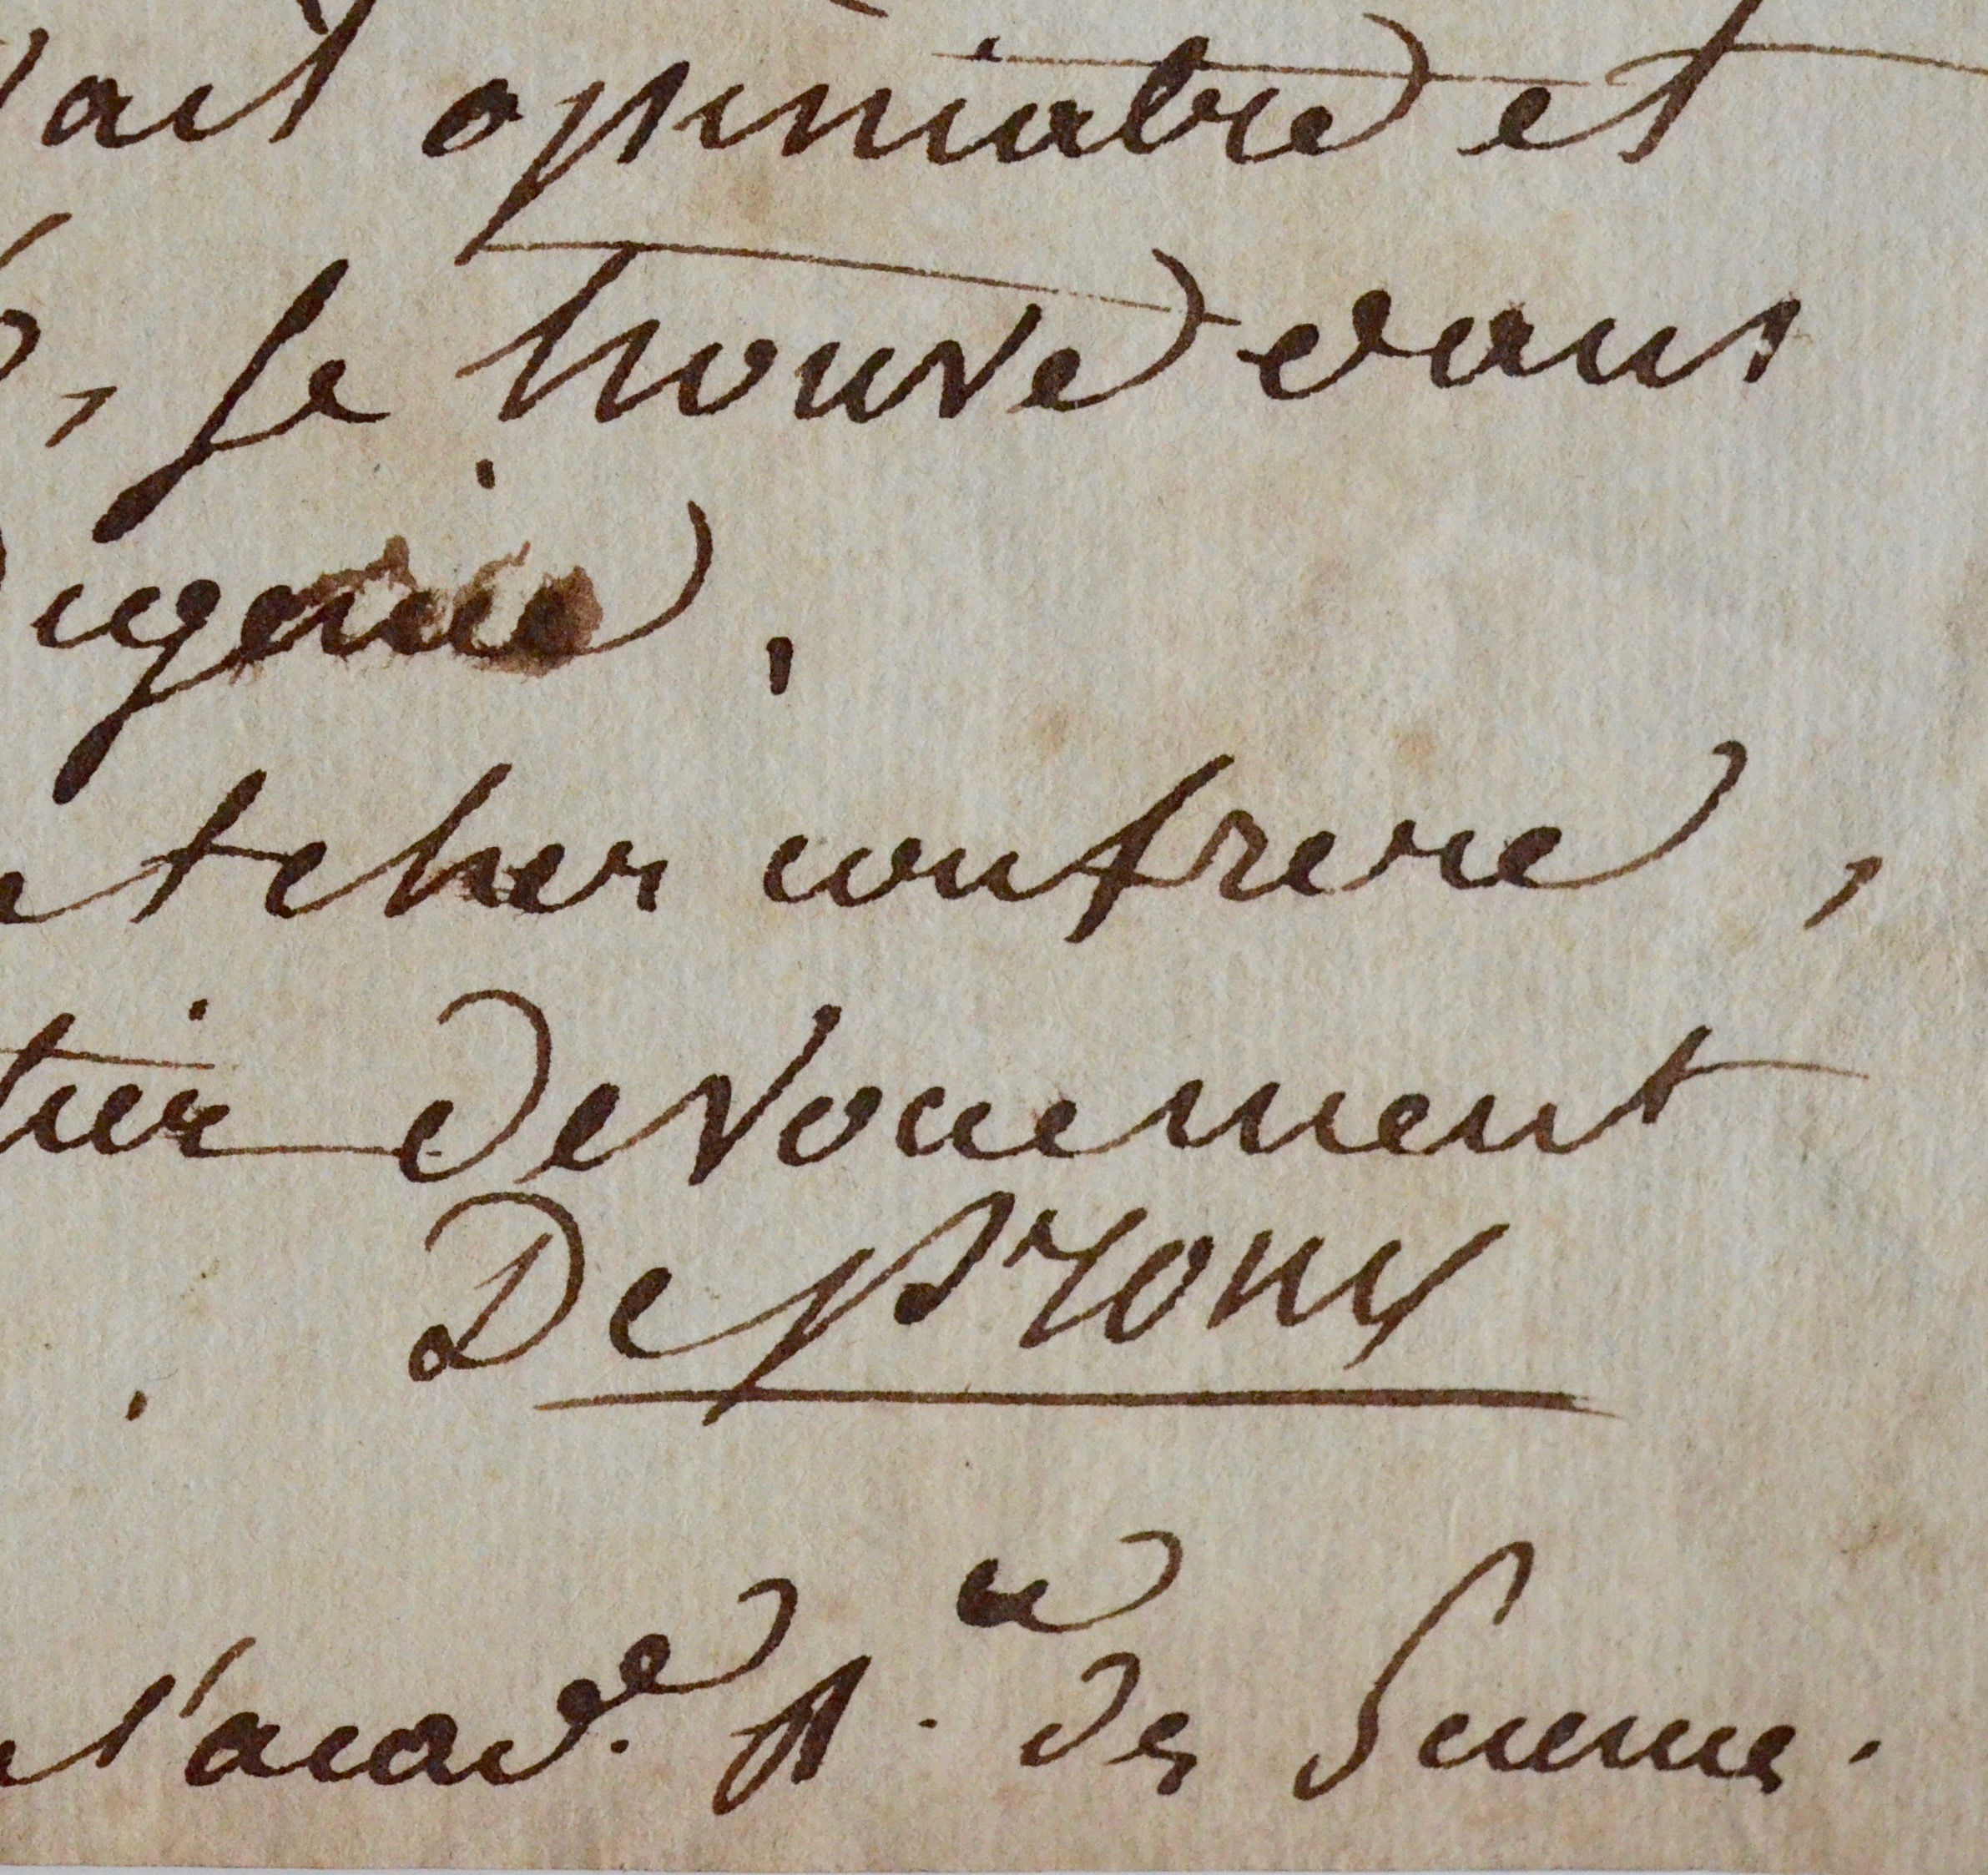 ait opiniatre et
, se trouve dans
et cher confrere,
devouement
De Prony
l'acad.e R.le des Sciences.